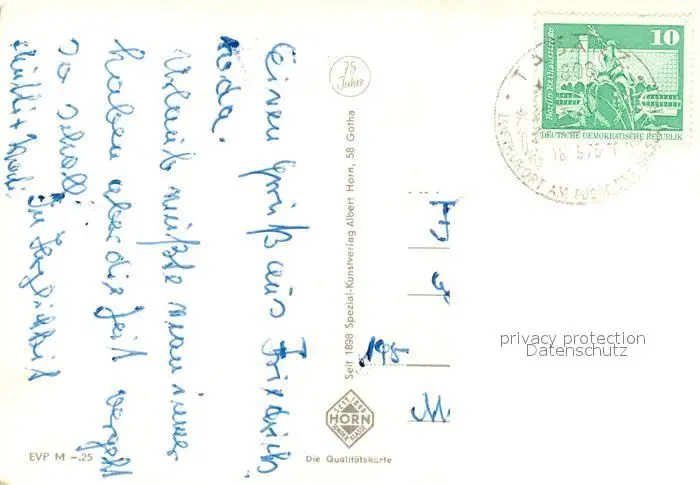 Einen Gruß aus Friedrich
roda.
Urlaub müßte man immer
haben aber die Zeit vergeht
so schnell
In Herzlichkeit
75
Jahre
Seit 1898 Spezial-Kunstverlag Albert Horn, 58 Gotha
SEIT 1898
HORN
Die Qualitätskarte
EVP M –.25
10
Berlin, Rathausstraße
DEUTSCHE DEMOKRATISCHE REPUBLIK
TABARZ
LUFTKURORT AM FUSSE DES
195
M.
privacy protection
Datenschutz